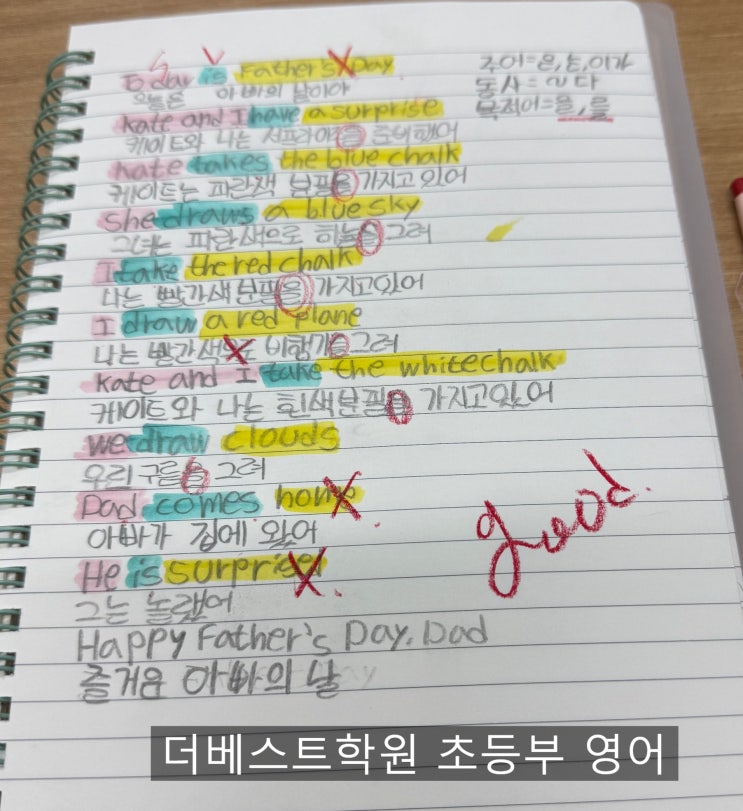 S V
Today is Father's Day
오늘은 아빠의 날이야
주어=은,는,이가
동사=~다
목적어=을,를
Kate and I have a surprise
케이트와 나는 서프라이즈를 준비했어
Kate takes the blue chalk
케이트는 파란색 분필을 가지고 있어
She draws a blue sky
그녀는 파란색으로 하늘을 그려
I take the red chalk
나는 빨간색 분필을 가지고있어
I draw a red plane
나는 빨간색 비행기를 그려
Kate and I take the white chalk
케이트와 나는 흰색분필을 가지고있어
we draw clouds
우리 구름을 그려
Dad comes home
아빠가 집에 왔어
good.
He is surprised
그는 놀랬어
Happy Father's Day, Dad
즐거운 아빠의 날
더베스트학원 초등부 영어